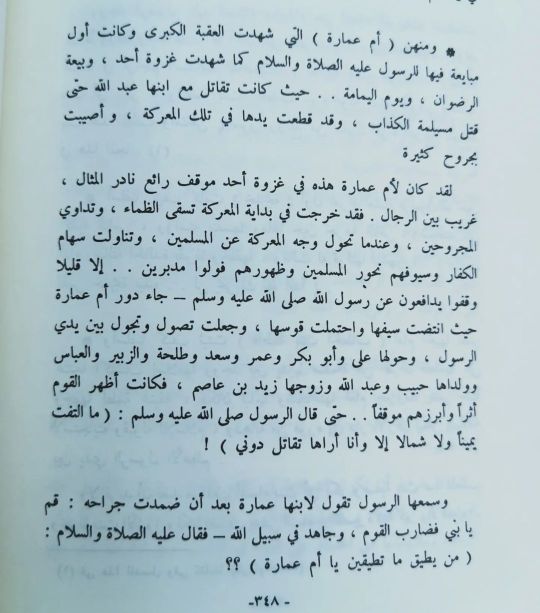 * ومنهن ( أم عمارة ) التي شهدت العقبة الكبرى وكانت أول
مبايعة فيها للرسول عليه الصلاة والسلام كما شهدت غزوة أحد ، وبيعة
الرضوان ، ويوم اليمامة . . حيث كانت تقاتل مع ابنها عبد الله حتى
قتل مسيلمة الكذاب ، وقد قطعت يدها في تلك المعركة ، وأصيبت
بجروح كثيرة
لقد كان لأم عمارة هذه في غزوة أحد موقف رائع نادر المثال ،
غريب بين الرجال . فقد خرجت في بداية المعركة تسقى الظماء ، وتداوي
المجروحين ، وعندما تحول وجه المعركة عن المسلمين ، وتناولت سهام
الكفار وسيوفهم نحور المسلمين وظهورهم فولوا مدبرين . . إلا قليلا
وقفوا يدافعون عن رسول الله صلى الله عليه وسلم – جاء دور أم عمارة
حيث انتضت سيفها واحتملت قوسها ، وجعلت تصول وتجول بين يدي
الرسول ، وحولها على وأبو بكر وعمر وسعد وطلحة والزبير والعباس
وولداها حبيب وعبد الله وزوجها زيد بن عاصم ، فكانت أظهر القوم
أثراً وأبرزهم موقفاً . . حتى قال الرسول صلى الله عليه وسلم : ( ما التفت
يميناً ولا شمالا إلا وأنا أراها تقاتل دوني ) !
وسمعها الرسول تقول لابنها عمارة بعد أن ضمدت جراحه : قم
يا بني فضارب القوم ، وجاهد في سبيل الله – فقال عليه الصلاة والسلام :
( من يطيق ما تطيقين يا أم عمارة ) ؟؟
-٣٤٨-